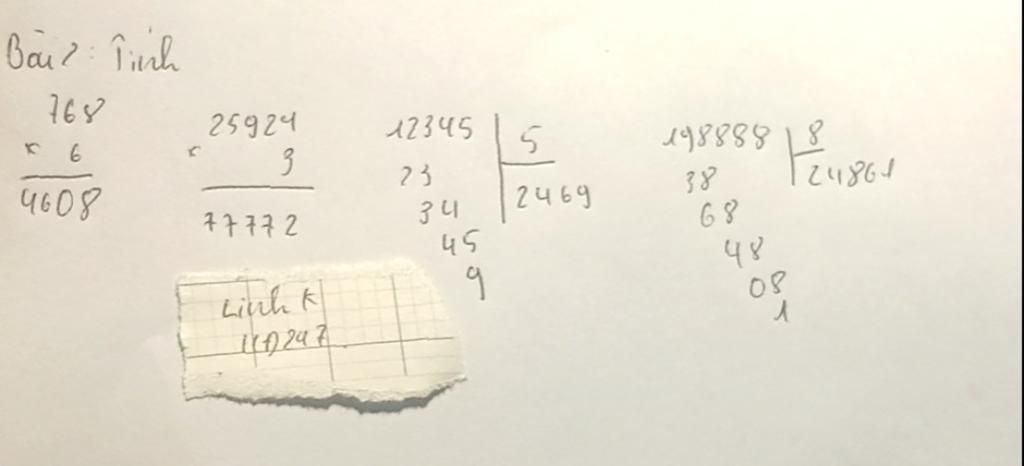 Bài 2: Tính
768
x 6
4608
25924
x 3
77772
12345 5
23 2469
34
45
9
198888 8
38 24861
68
48
08
1
Linh K
247